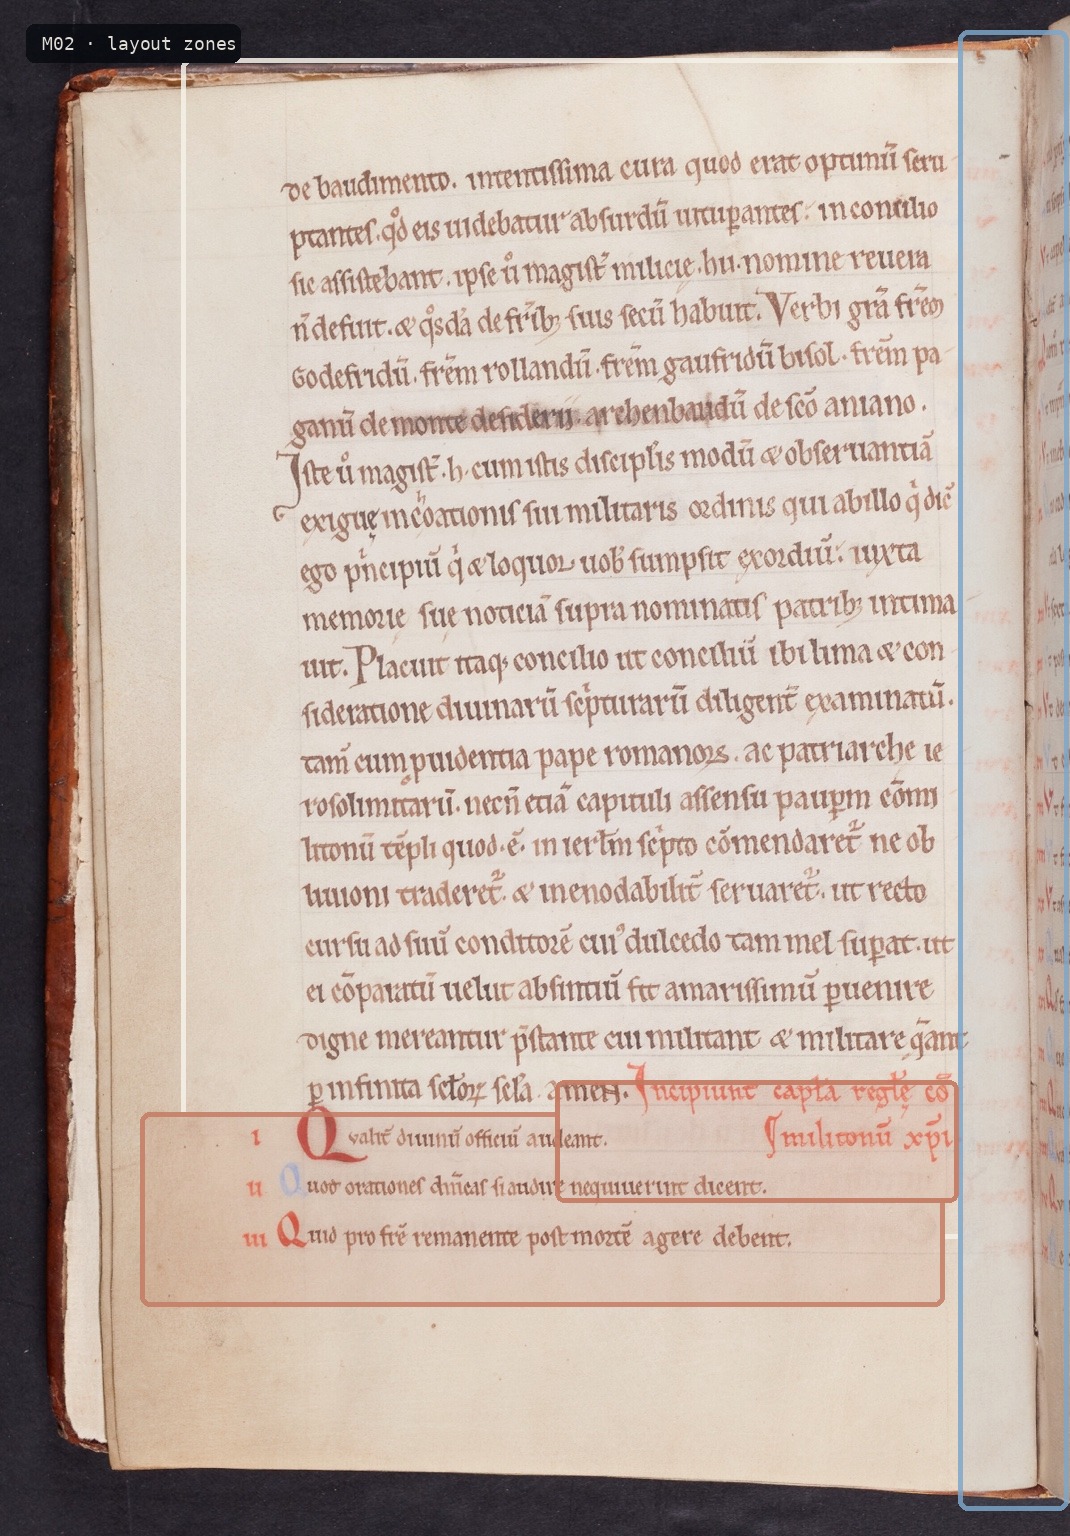 M02 · layout zones
de baudimento. intentissima cura quod erat optimū scru
ptantes. qd̊ eis uidebatur absurdū uitupantes. in concilio
sic assistebant. ipse ů magist̄ milicię .hu. nomine reuera
n̄ defuit. & qͦsdā de fr̄ib; suis secū habuit. Verbi grā frēm
Godefridū. frēm rollandū. frēm gaufridū bisol. frēm pa
ganū de monte desiderij. archenbaudū de scō aniano.
Iste ů magist̄ .h. cum istis discipľis modū & obseruantiā
exiguę inc̊hoationis sui militaris ordinis qui ab illo q̇ dic̄
ego pͥncipiū q̇ & loquor uob̄ sumpsit exordiū. iuxta
memorię suę noticiā supra nominatis patrib; intima
uit. Placuit itaq; concilio ut conciliū ibi lima & con
sideratione diuinarū scͥpturarū diligent̄ examinatū.
tam̄ cum puidentia pape romanoꝝ. ac patriarche ie
rosolimitarū. necn̄ etiā capituli assensu paupum cōmi
litonū tēpli quod .ē. in ierłm scͥpto cōmendaret̄ ne ob
liuioni traderet̄. & inenodabilit̄ seruaret̄. ut recto
cursu ad suū conditorē cui᾽ dulcedo tam mel supat. ut
ei cōparatū uelut absintiū sit amarissimū puenire
digne mereantur p̄stante cui militant & militare q̄ant
p infinita sclor̄ꝝ scla. amen. Incipiunt capl̄a regłę cō
I Qualit̄ diuinū officiū audeant. militonū xp̄i
II Quot orationes dn̄icas si audire nequiuerint dicent.
III Quid pro frē remanente post mortē agere debent.